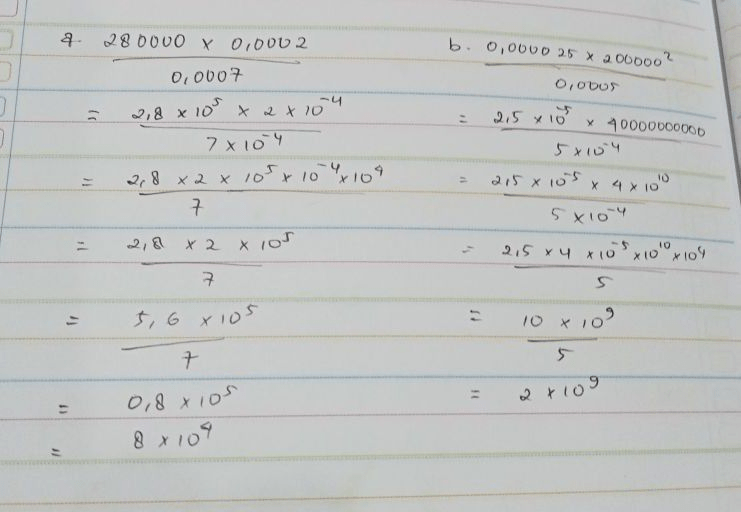 a. 280000 x 0,0002 / 0,0007
= 2,8 x 10⁵ x 2 x 10⁻⁴ / 7 x 10⁻⁴
= 2,8 x 2 x 10⁵ x 10⁻⁴ x 10⁴ / 7
= 2,8 x 2 x 10⁵ / 7
= 5,6 x 10⁵ / 7
= 0,8 x 10⁵
= 8 x 10⁴
b. 0,000025 x 200000² / 0,0005
= 2,5 x 10⁻⁵ x 40000000000 / 5 x 10⁻⁴
= 2,5 x 10⁻⁵ x 4 x 10¹⁰ / 5 x 10⁻⁴
= 2,5 x 4 x 10⁻⁵ x 10¹⁰ x 10⁴ / 5
= 10 x 10⁹ / 5
= 2 x 10⁹